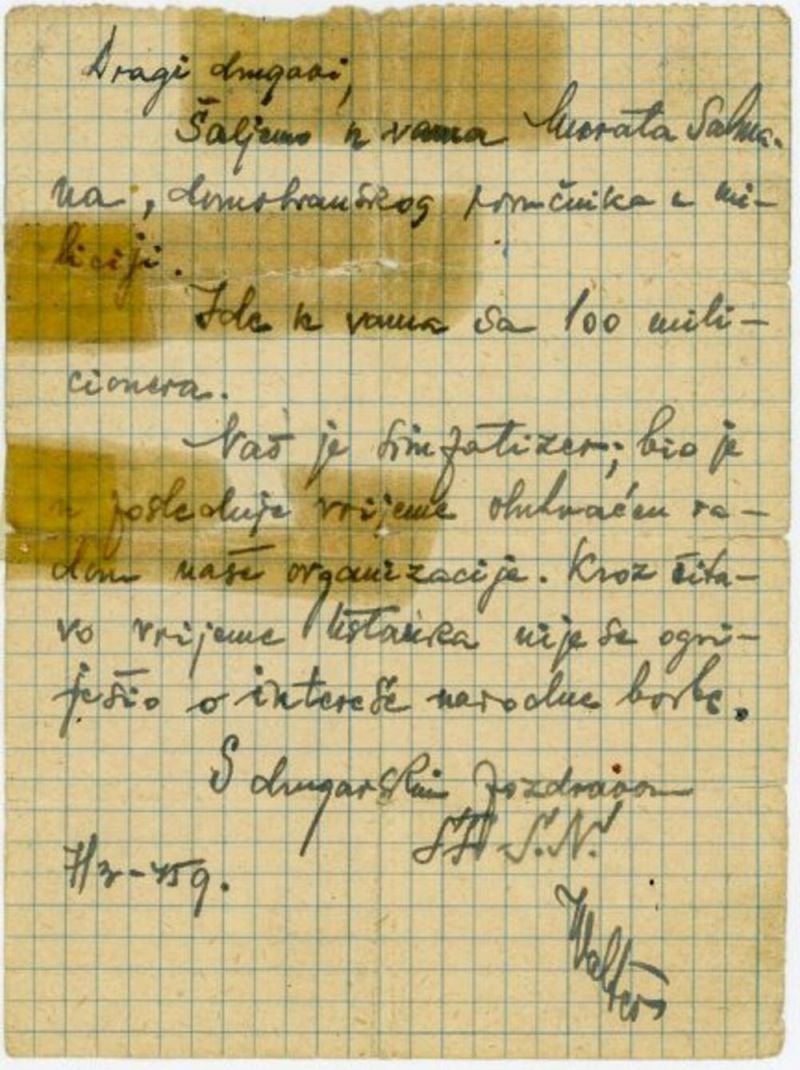 Dragi drugovi,
Šaljemo k vama Murata Salma-
na, domobranskog poručnika u mi-
liciji.
Ide k vama sa 100 mili-
cionera.
Naš je simpatizer; bio je
u poslednje vrijeme obuhvaćen ra-
dom naše organizacije. Kroz čita-
vo vrijeme Ustanka nije se ogri-
ješio o interese narodne borbe.
S drugarskim pozdravom
7/3-45g.
Walter